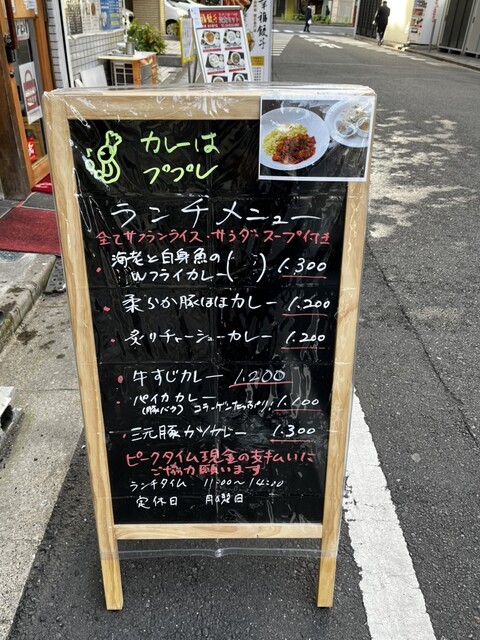 カレーは
ププレ
ランチメニュー
全てサフランライス・サラダ・スープ付き
海老と白身魚の
Wフライカレー( ) 1.300
柔らか豚ほほカレー 1.200
炙りチャーシューカレー 1.200
牛すじカレー 1.200
パイカカレー
(豚バラ) コラーゲンたっぷり! 1.100
三元豚カツカレー 1.300
ピークタイム現金の支払いに
ご協力願います
ランチタイム 11:00〜14:00
定休日 月曜日